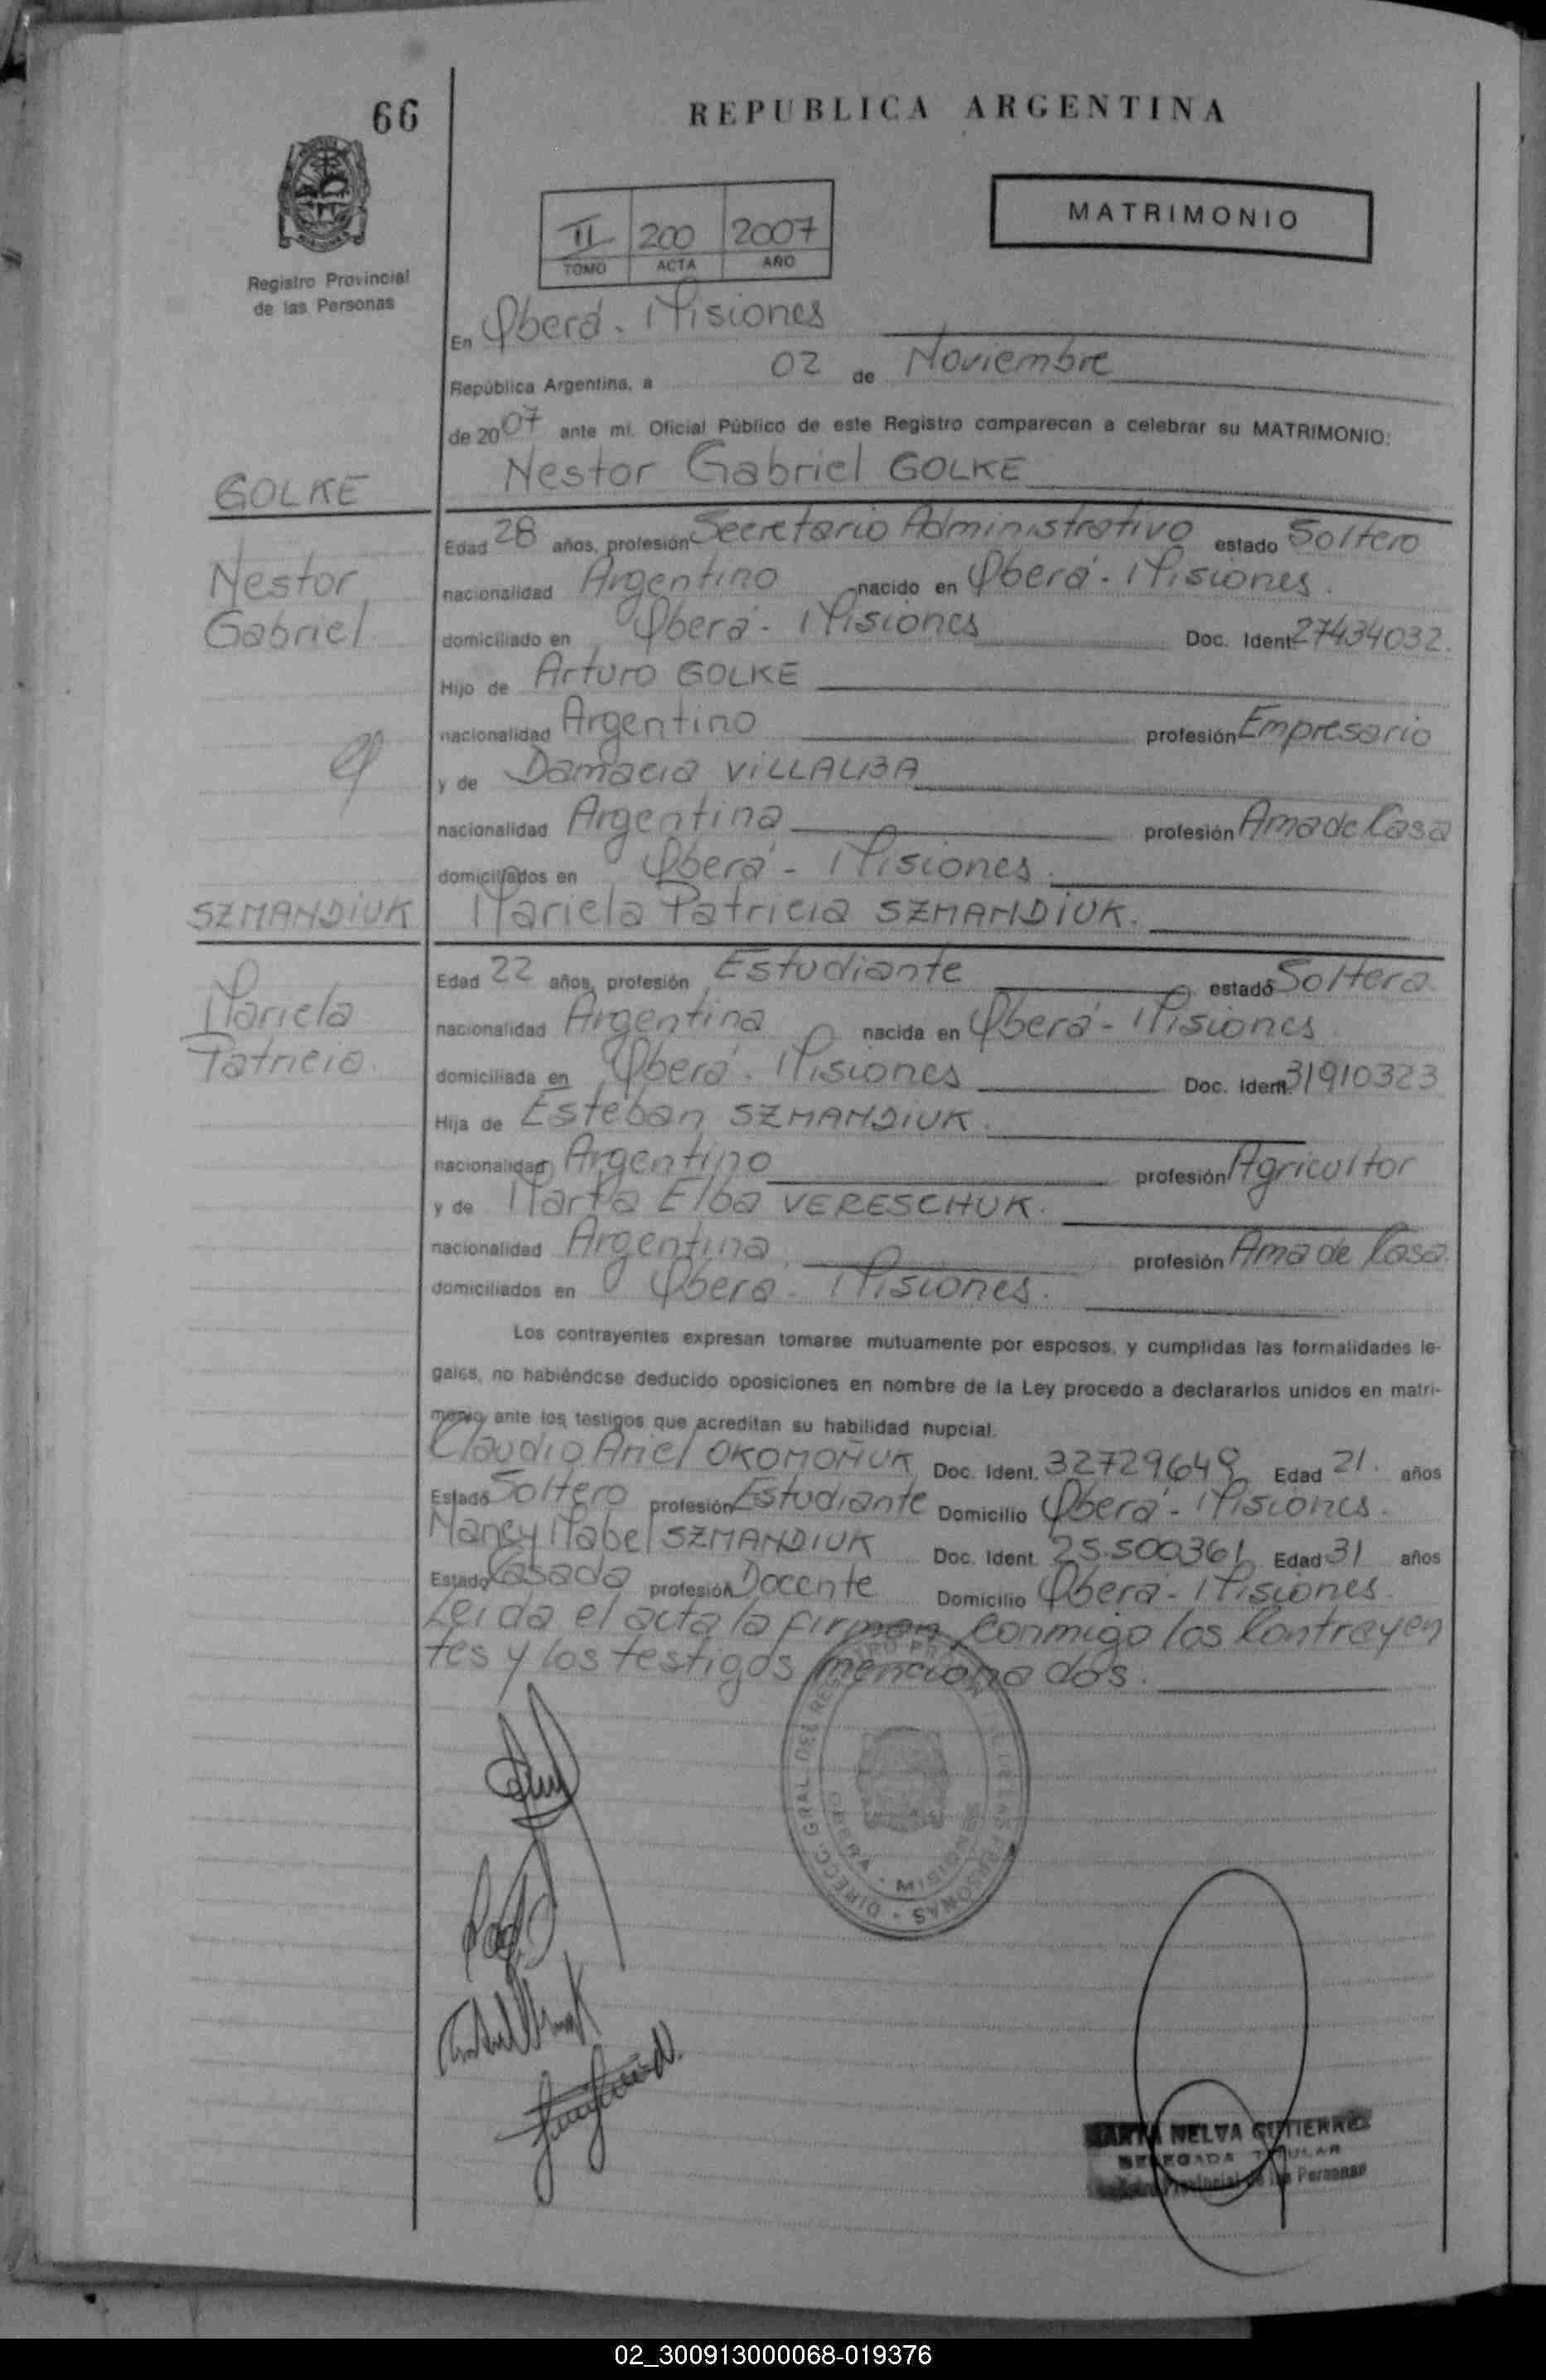 66
REPUBLICA ARGENTINA
MATRIMONIO
II 200 2007
TOMO ACTA AÑO
Registro Provincial
de las Personas
En Oberá. Misiones
República Argentina, a 02 de Noviembre
de 2007 ante mí, Oficial Público de este Registro comparecen a celebrar su MATRIMONIO:
GOLKE Nestor Gabriel GOLKE
Edad 28 años, profesión Secretario Administrativo estado Soltero
Nestor nacionalidad Argentino nacido en Oberá - Misiones.
Gabriel domiciliado en Oberá - Misiones Doc. Ident. 27434032.
Hijo de Arturo GOLKE
nacionalidad Argentino profesión Empresario
y de Damacia VILLALBA
nacionalidad Argentina profesión Ama de Casa
domiciliados en Oberá - Misiones.
SZMANDIUK Mariela Patricia SZMANDIUK.
Edad 22 años, profesión Estudiante estado Soltera
Mariela nacionalidad Argentina nacida en Oberá - Misiones
Patricia. domiciliada en Oberá - Misiones Doc. Ident. 31910323
Hija de Esteban SZMANDIUK.
nacionalidad Argentino profesión Agricultor
y de Marta Elba VERESCHUK.
nacionalidad Argentina profesión Ama de Casa.
domiciliados en Oberá - Misiones.
Los contrayentes expresan tomarse mutuamente por esposos, y cumplidas las formalidades le-
gales, no habiéndose deducido oposiciones en nombre de la Ley procedo a declararlos unidos en matri-
monio ante los testigos que acreditan su habilidad nupcial.
Claudio Ariel OKOMOÑUK Doc. Ident. 32729649 Edad 21. años
Estado Soltero profesión Estudiante Domicilio Oberá - Misiones.
Nancy Mabel SZMANDIUK Doc. Ident. 25.500361 Edad 31 años
Estado Casada profesión Docente Domicilio Oberá - Misiones.
Leida el acta la firman conmigo los Contrayen
tes y los testigos mencionados.
DIRECC. GRAL. DEL REGISTRO PROVINCIAL DE LAS PERSONAS
OBERA - MISIONES
MARTA NELVA GUTIERREZ
DELEGADA TITULAR
Registro Provincial de las Personas
02_300913000068-019376